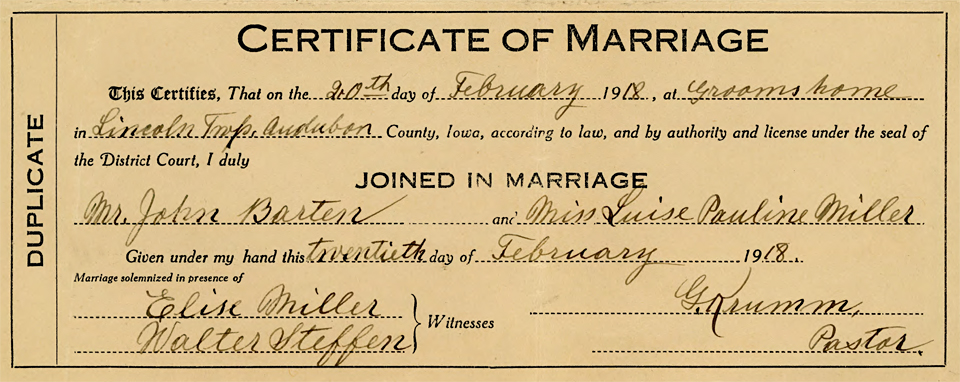 CERTIFICATE OF MARRIAGE
DUPLICATE
This Certifies, That on the 20th day of February 1918, at Grooms home
in Lincoln Twp. Audubon County, Iowa, according to law, and by authority and license under the seal of
the District Court, I duly
JOINED IN MARRIAGE
Mr. John Barten and Miss Luise Pauline Miller
Given under my hand this twentieth day of February 1918.
Marriage solemnized in presence of
Elise Miller
Walter Steffen
Witnesses
G. Krumm,
Pastor.